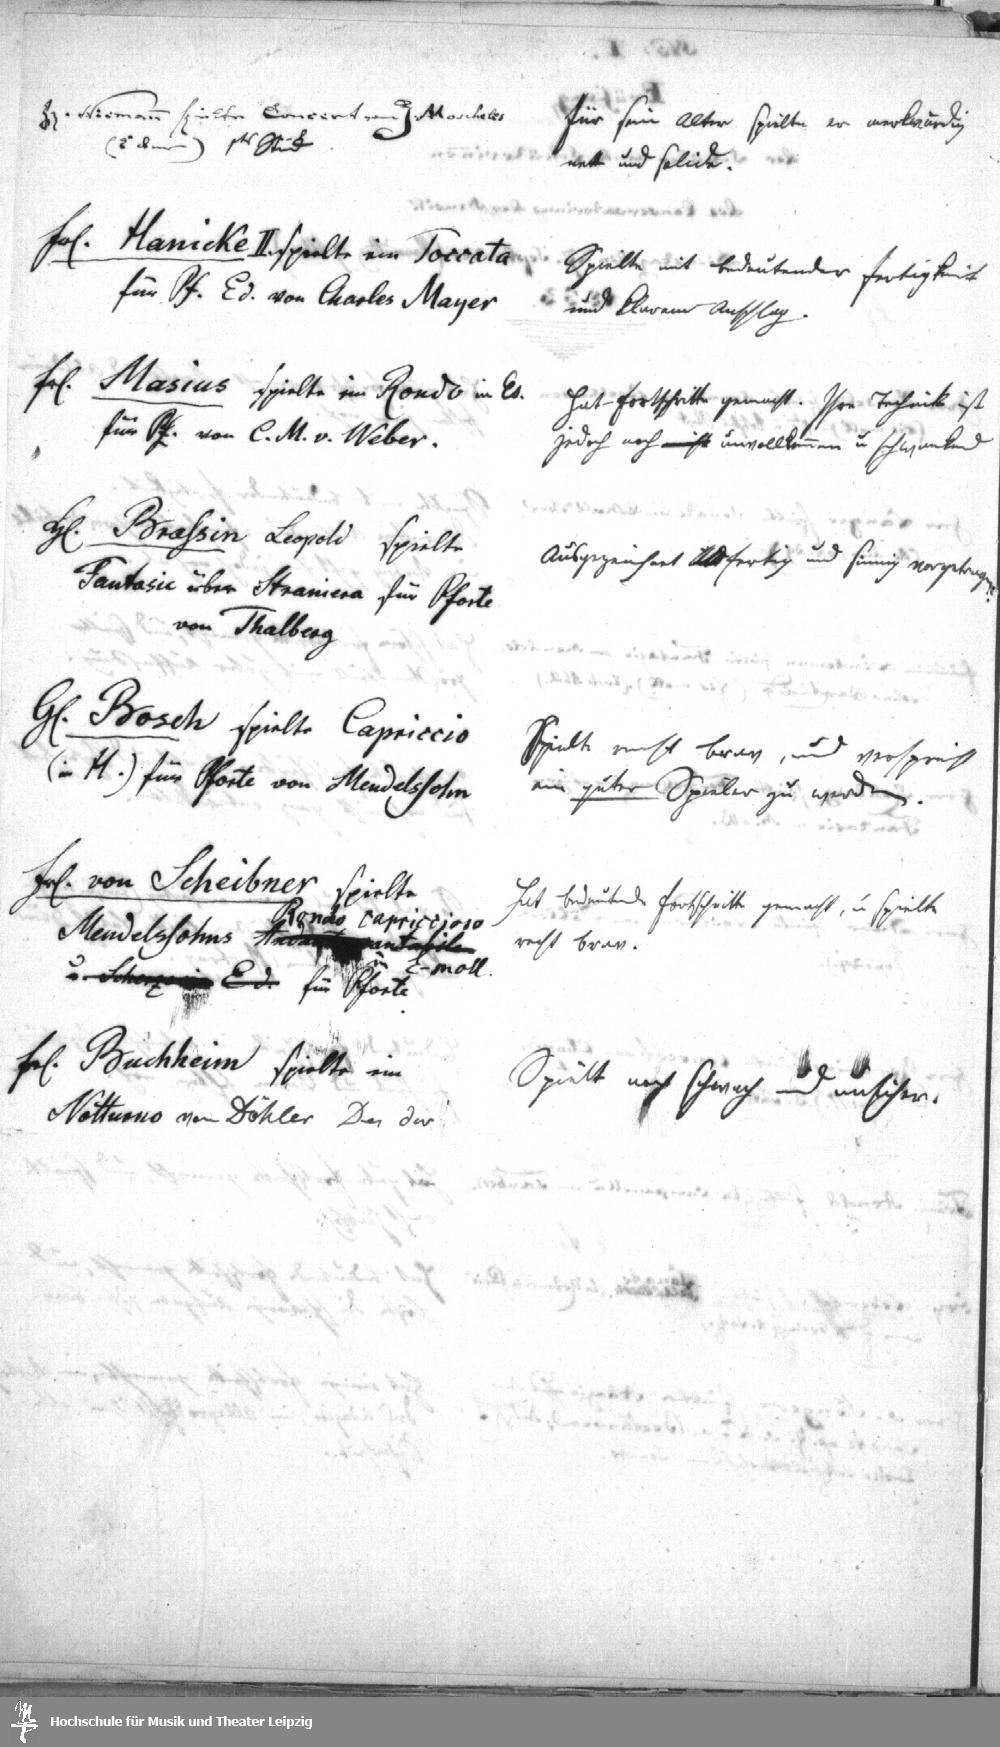 H. Niemañ spielte Concert von J. Moscheles
(E dur) 1tes Stück
Für sein Alter spielte er merkwürdig
nett und solide.
Frl. Hanicke II. spielte ein Toccata
für Pf. Ed. von Charles Mayer
Spielte mit bedeutender Fertigkeit
und klarem Anschlag.
Frl. Masius spielte ein Rondo in Es.
für Pf. von C. M. v. Weber.
Hat Fortschritte gemacht. Ihre Technik ist
jedoch noch nicht unvollkom̄en u schwankend
H. Brassin Leopold spielte
Fantasie über Straniera für Pforte
von Thalberg
Ausgezeichnet fertig und sinnig vorgetragen.
H. Bosch spielte Capriccio
(in H.) für Pforte von Mendelssohn
Spielte recht brav, und verspricht
ein guter Spieler zu werden.
Frl. von Scheibner spielte
Rondo capriccioso
Mendelssohns Andante cantabile
in E-moll.
u. Scherzo in E d. für Pforte
Hat bedeutende Fortschritte gemacht, u spielte
recht brav.
Frl. Buchheim spielte ein
Notturno von Döhler Des dur
Spielt noch schwach und unsicher.
Hochschule für Musik und Theater Leipzig